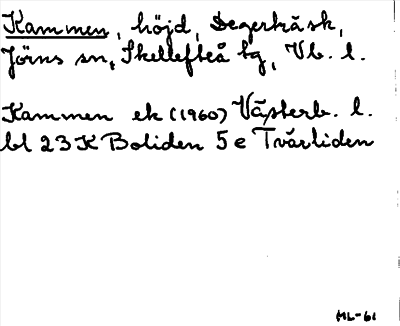 Kammen, höjd, Degerträsk,
Jörns sn, Skellefteå tg, Vb. l.
Kammen ek (1960) Västerb. l.
bl 23 K Boliden 5 e Tvärliden
ML-61